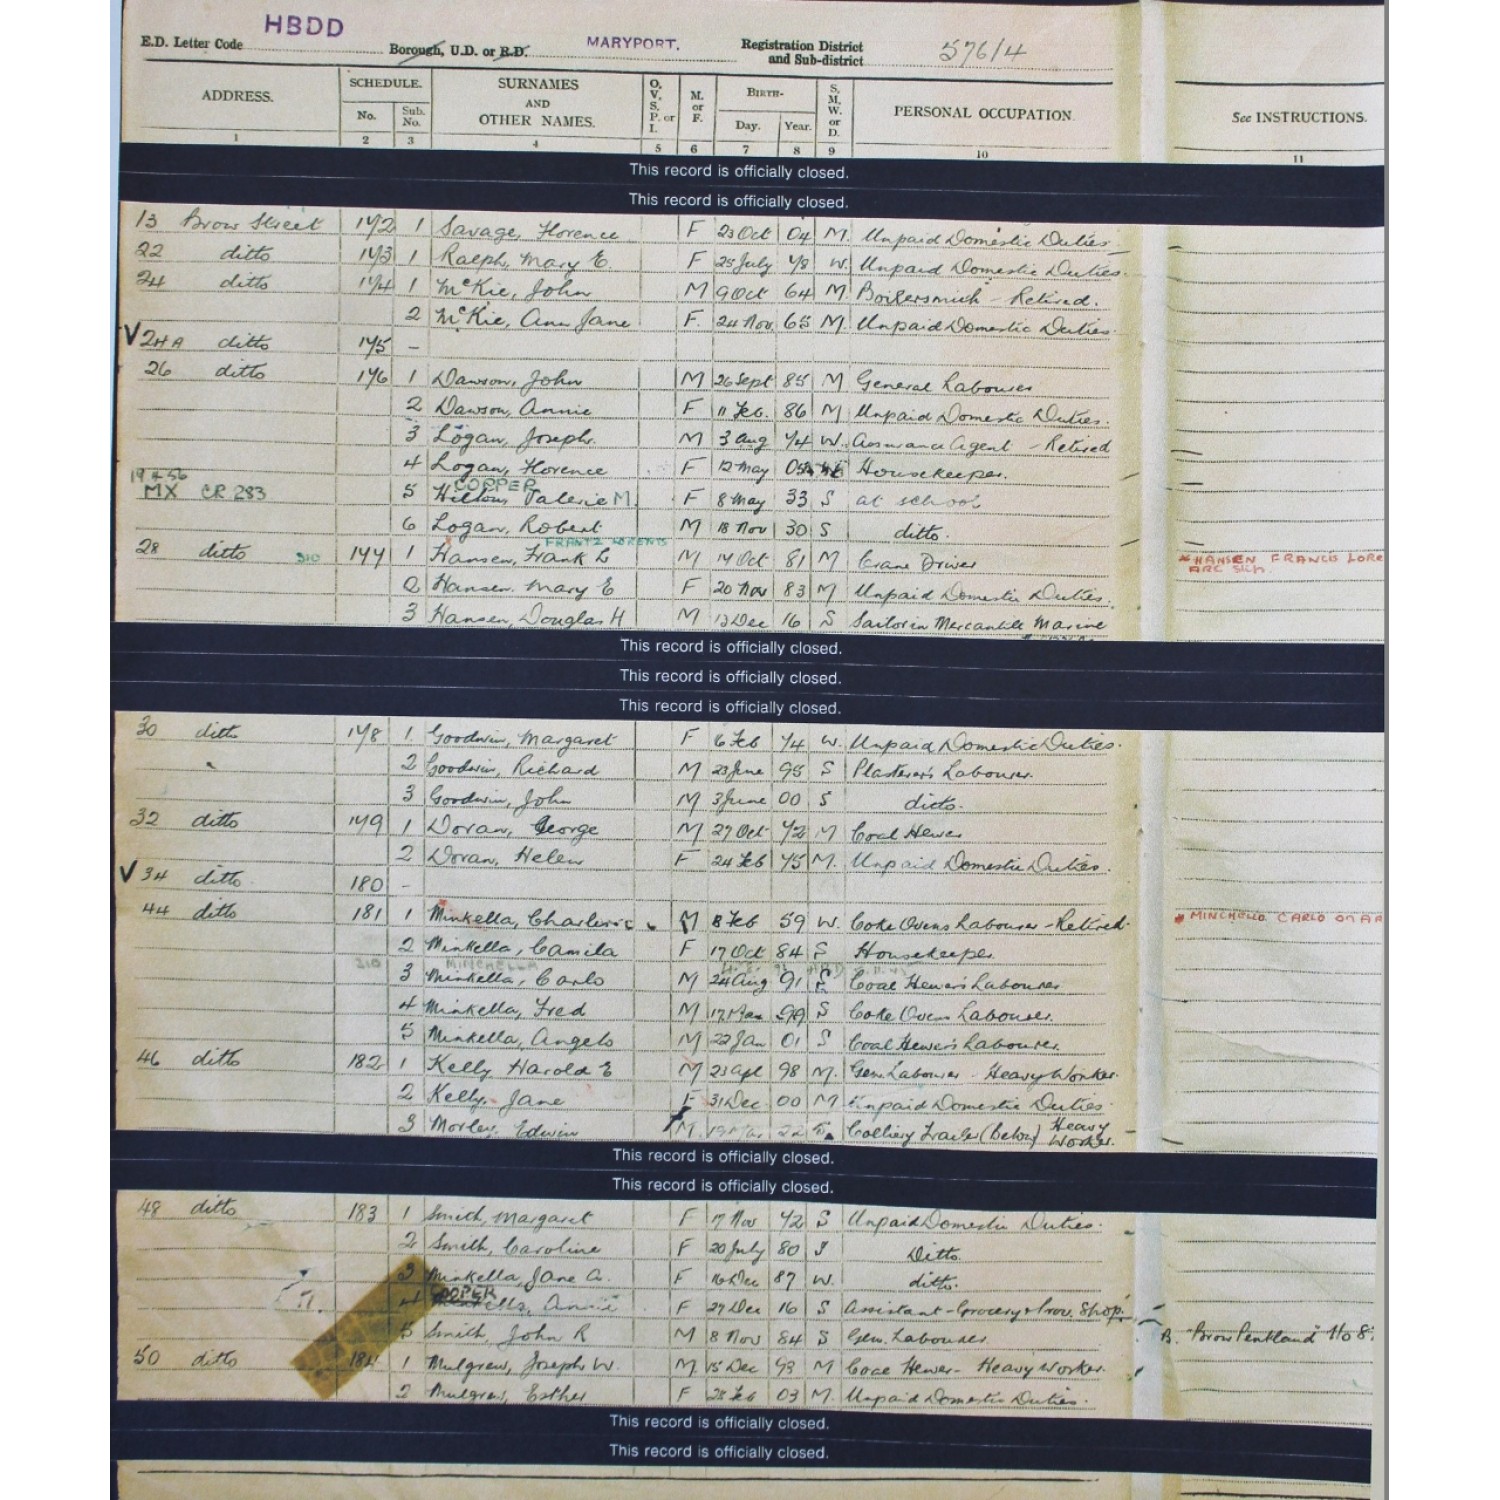 HBDD
E.D. Letter Code Borough, U.D. or R.D. MARYPORT. Registration District and Sub-district 576/4
ADDRESS. SCHEDULE. No. Sub. No. SURNAMES AND OTHER NAMES. O. V. S. P. or I. M. or F. BIRTH- Day. Year. S. M. W. or D. PERSONAL OCCUPATION. See INSTRUCTIONS.
1 2 3 4 5 6 7 8 9 10 11
This record is officially closed.
This record is officially closed.
13 Brow Street 172 1 Savage, Florence F 23 Oct 04 M. Unpaid Domestic Duties
22 ditto 173 1 Ralph, Mary E. F 25 July 78 W. Unpaid Domestic Duties.
24 ditto 174 1 McKie, John M 9 Oct 64 M. Boilersmith - Retired.
2 McKie, Ann Jane F. 24 Nov 65 M. Unpaid Domestic Duties.
V 24A ditto 175 -
26 ditto 176 1 Dawson, John M 26 Sept 85 M General Labourer
2 Dawson, Annie F 11 Feb. 86 M Unpaid Domestic Duties.
3 Logan, Joseph. M 3 Aug 74 W. Assurance Agent - Retired
4 Logan, Florence F 12 May 05 Housekeeper.
19 4 56
COPPER
MX CR 283 5 Hilton, Valerie M. F 8 May 33 S at school
6 Logan, Robert M 18 Nov 30 S ditto.
FRANTZ LORENTS
28 ditto 310 177 1 Hansen, Frank L M 14 Oct 81 M Crane Driver * HANSEN FRANCIS LORE
ARC Slip.
2 Hansen. Mary E F 20 Nov 83 M Unpaid Domestic Duties.
3 Hansen, Douglas H M 13 Dec 16 S Sailor in Mercantile Marine
This record is officially closed.
This record is officially closed.
This record is officially closed.
30 ditto 178 1 Goodwin, Margaret F 6 Feb 74 W. Unpaid Domestic Duties.
2 Goodwin, Richard M 23 June 95 S Plasterer's Labourer.
3 Goodwin, John M 3 June 00 S ditto.
32 ditto 179 1 Doran, George M 27 Oct 72 M Coal Hewer
2 Doran, Helen F 24 Feb 75 M. Unpaid Domestic Duties.
V 34 ditto. 180 -
44 ditto 181 1 Minkella, M 8 Feb 59 W. Coke Ovens Labourer - Retired. * MINCHELLO CARLO ON AR
2 Minkella, Camila F 17 Oct 84 S Housekeeper.
310 MINCHELLA
3 Minkella, Carlo M 24 Aug 91 S Coal Hewer's Labourer
4 Minkella, Fred M 17 Mar 99 S Coke Ovens Labourer.
5 Minkella, Angelo M 22 Jan 01 S Coal Hewer's Labourer.
46 ditto 182 1 Kelly Harold E M 23 Apl 98 M. Gen. Labourer - Heavy Worker.
2 Kelly, Jane F 31 Dec 00 M Unpaid Domestic Duties.
3 Morley, Edwin M. 19 Mar 22 Colliery Trailer (Below) Heavy Worker.
This record is officially closed.
This record is officially closed.
48 ditto 183 1 Smith, Margaret F 17 Nov 72 S Unpaid Domestic Duties.
2 Smith, Caroline F 20 July 80 S Ditto.
3 Minkella, Jane A. F 16 Dec 87 W. ditto.
COOPER
4 Minkella, Annie F 27 Dec 16 S Assistant - Grocery & Prov. Shop.
5 Smith, John R M 8 Nov 84 S Gen. Labourer B. "Brow Pentland" H o S.
50 ditto 184 1 Mulgrew, Joseph W. M 15 Dec 93 M Coal Hewer - Heavy Worker.
2 Mulgrew, Esther F 28 Feb 03 M. Unpaid Domestic Duties.
This record is officially closed.
This record is officially closed.